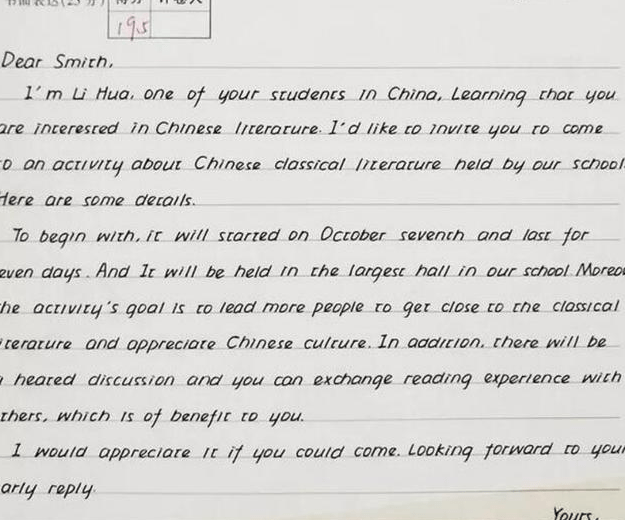 书面表达(25分)
195
Dear Smith,
I'm Li Hua, one of your students in China, Learning that you
are interested in Chinese literature. I'd like to invite you to come
to an activity about Chinese classical literature held by our school.
Here are some details.
To begin with, it will started on October seventh and last for
even days. And It will be held in the largest hall in our school Moreo
he activity's goal is to lead more people to get close to the classical
iterature and appreciate Chinese culture. In addition, there will be
heated discussion and you can exchange reading experience with
thers, which is of benefit to you.
I would appreciate it if you could come. Looking forward to your
arly reply.
Yours,